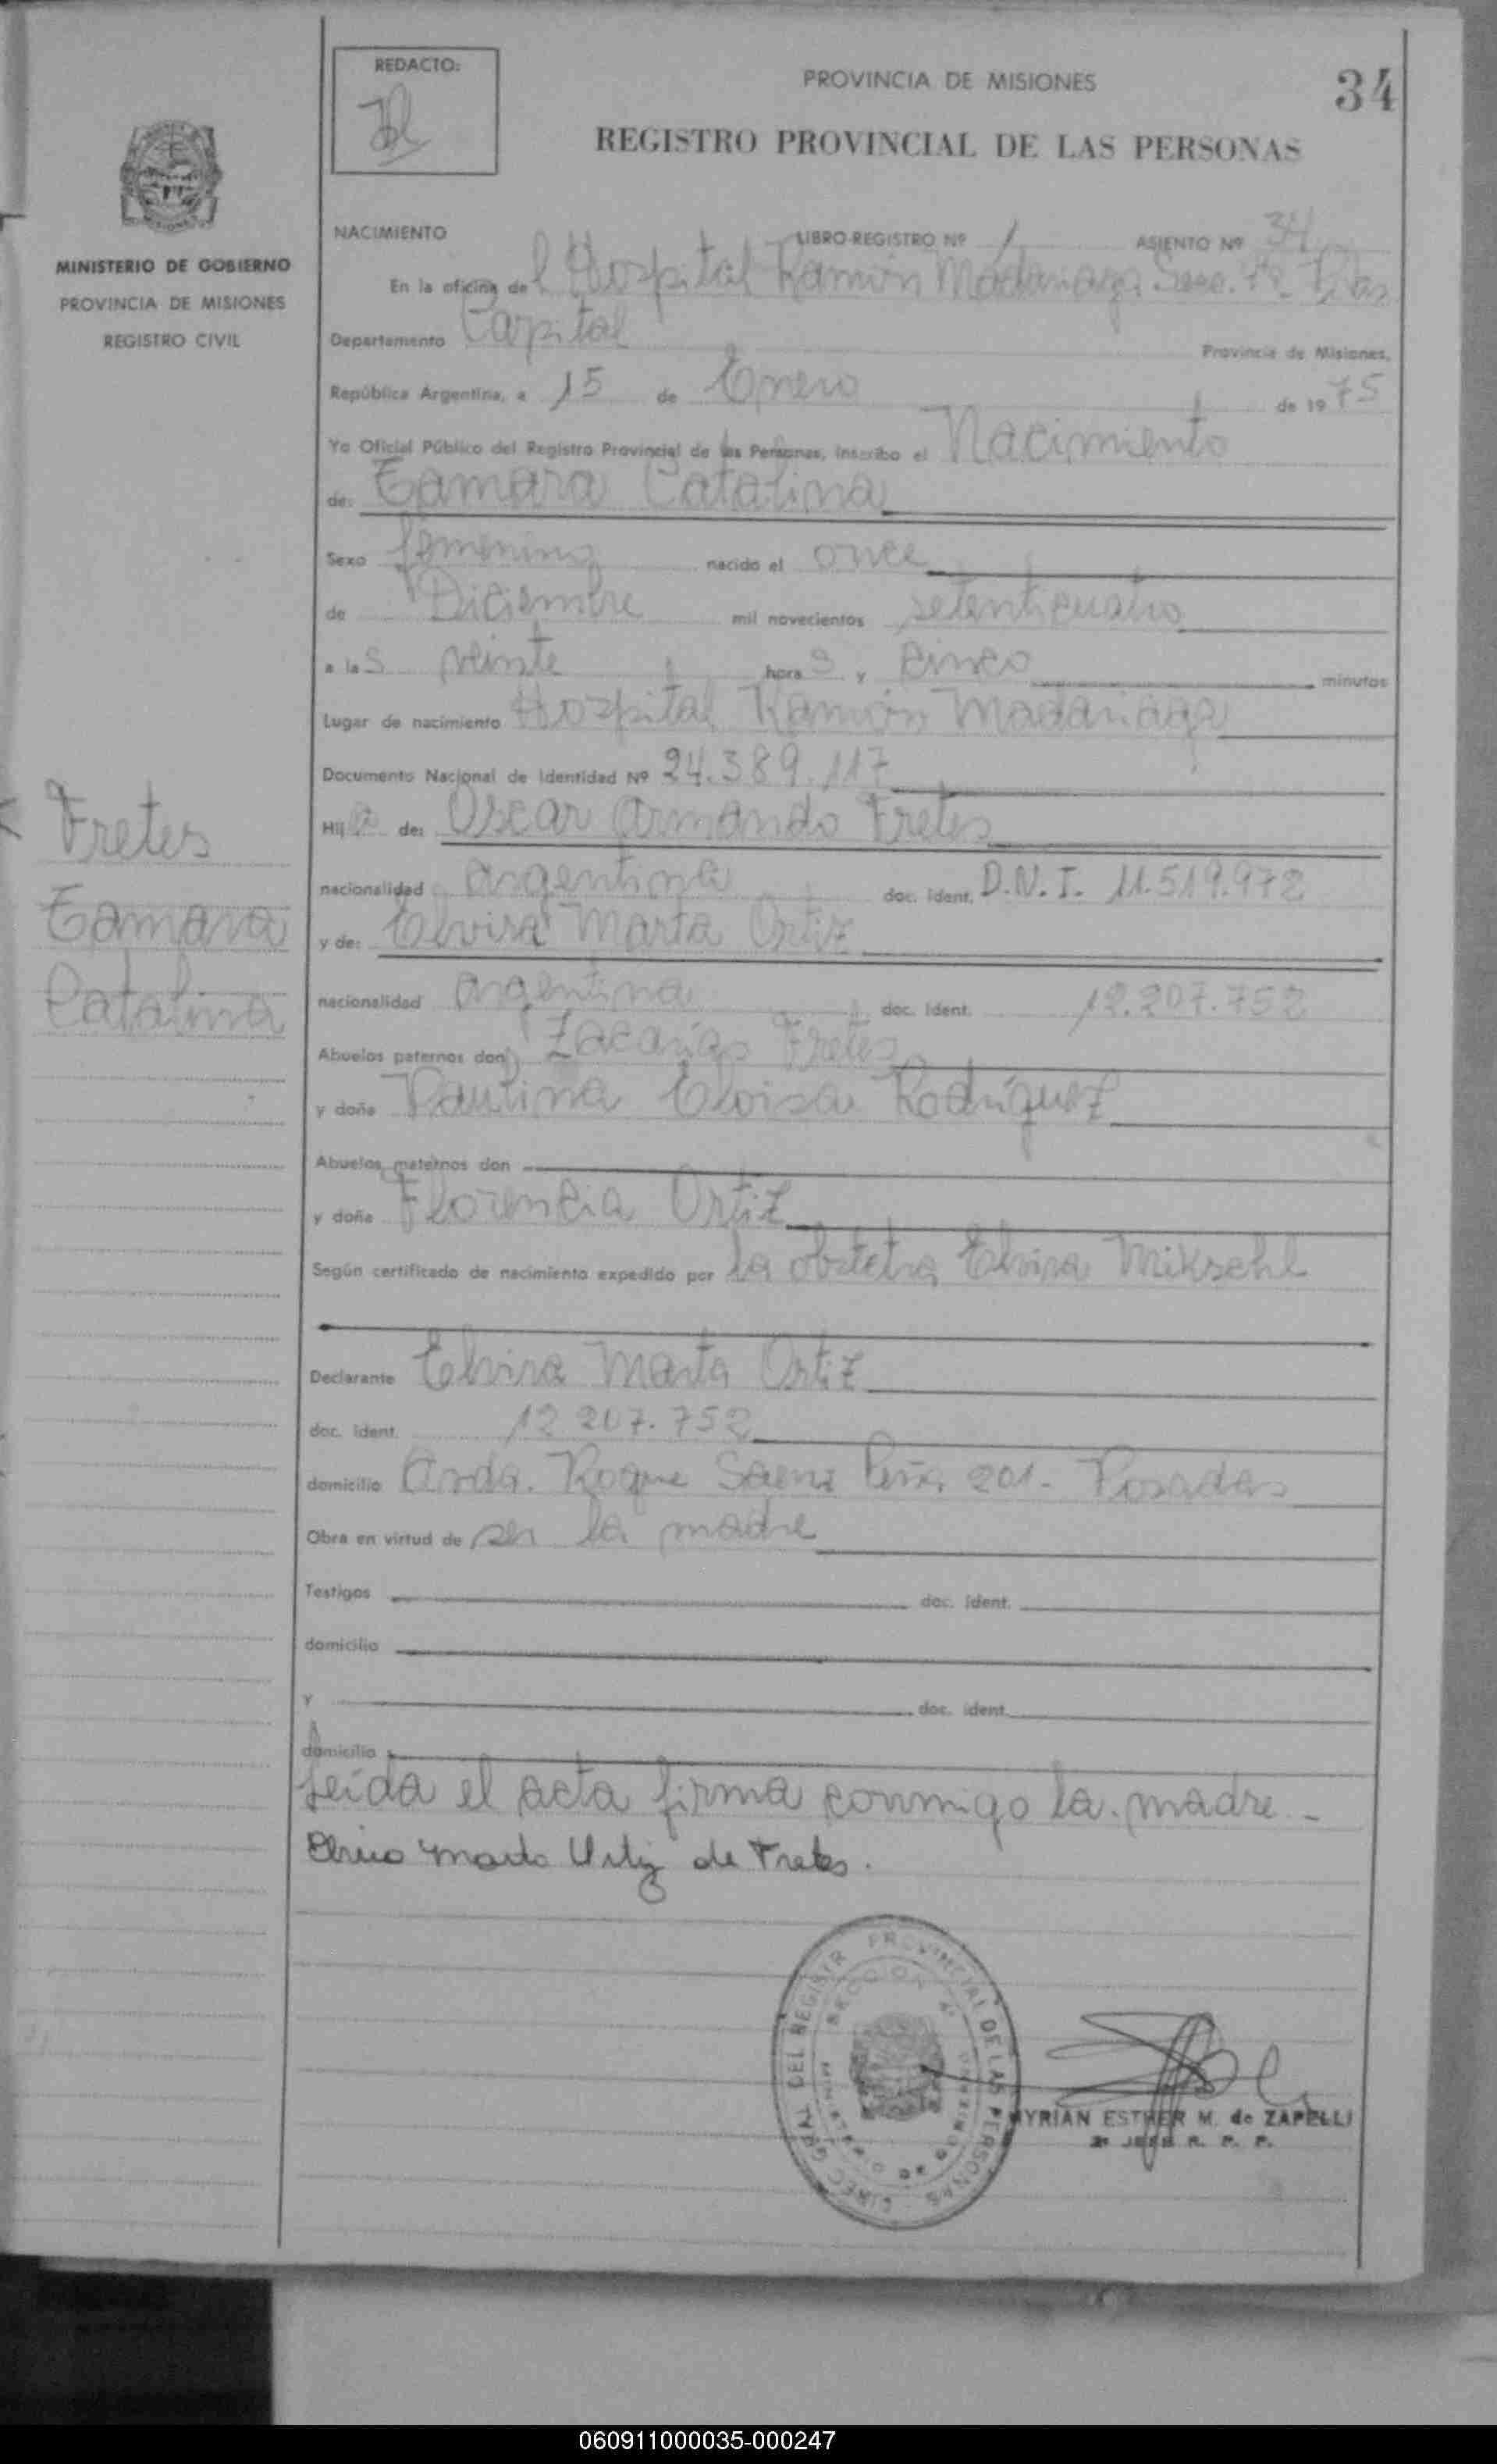 REDACTO:
PROVINCIA DE MISIONES
34
REGISTRO PROVINCIAL DE LAS PERSONAS
MINISTERIO DE GOBIERNO
PROVINCIA DE MISIONES
REGISTRO CIVIL
NACIMIENTO LIBRO-REGISTRO Nº 1 ASIENTO Nº 34
En la oficina del Hospital Ramón Madariaga Secc. 4ª Pdas
Departamento Capital Provincia de Misiones,
República Argentina, a 15 de Enero de 1975
Yo Oficial Público del Registro Provincial de las Personas, inscribo el Nacimiento
de: Tamara Catalina
Sexo femenino nacido el once
de Diciembre mil novecientos setenticuatro
a las veinte horas y cinco minutos
Lugar de nacimiento Hospital Ramón Madariaga
Documento Nacional de Identidad Nº 24.389.117
Hija de: Oscar Armando Fretes
nacionalidad argentina doc. ident. D.N.I. 11.519.972
y de: Elvira Marta Ortiz
nacionalidad argentina doc. ident. 12.207.752
Abuelos paternos don Zacarías Fretes
y doña Paulina Eloisa Rodríguez
Abuelos maternos don
y doña Florencia Ortiz
Según certificado de nacimiento expedido por la obstetra Elvira Miksehl
Declarante Elvira Marta Ortiz
doc. ident. 12 207.752
domicilio Avda. Roque Saenz Peña 201 - Posadas
Obra en virtud de ser la madre
Testigos doc. ident.
domicilio
y doc. ident.
domicilio
Leída el acta firma conmigo la madre.-
Elvira Marta Ortiz de Fretes.
Fretes
Tamara
Catalina
DIREC. GRAL. DEL REGISTR PROVINCIAL DE LAS PERSONAS
MYRIAN ESTHER M. de ZAPELLI
2º JEFE R. P. P.
060911000035-000247